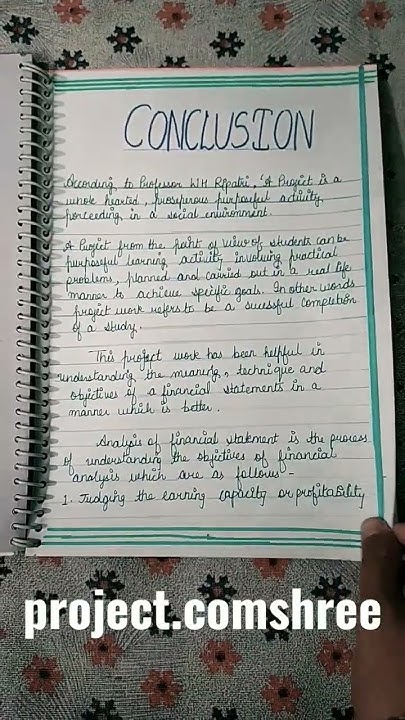 CONCLUSION
According to Professor W.H RPpatri, 'A Project is a
whole hearted, prosperous purposeful activity
porceeding in a social environment.
A Project from the point of view of students can be
purposeful learning activity involving practical
problems, planned and carried out in a real life
manner to achieve specific goals. In other words
project work refers to be a sucessful completion
of a study.
This project work has been helpful in
understanding the meaning, technique and
objectives of a financial statements in a
manner which is better.
Analysis of financial statement is the process
of understanding the objectives of financial
analysis which are as follows -
1. Judging the earning capacity or profitability
project.comshree